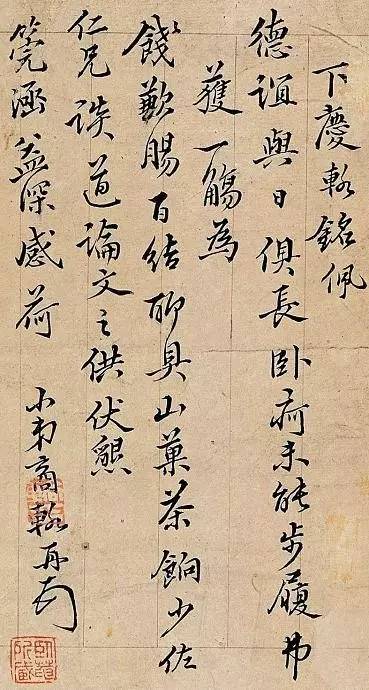 下慶輅銘佩
德誼與日俱長卧疴未能步履弗
獲一觴為
餞歉腸百结聊具山菓茶餉少佐
仁兄談道論文之供伏懇
筦涵益深感荷
小弟商輅再